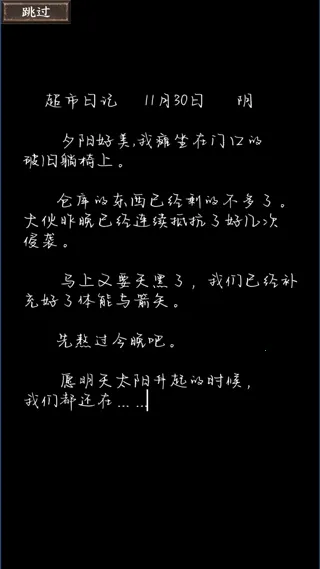 跳过
超市日记 11月30日 阴
夕阳好美,我瘫坐在门口的
破旧躺椅上。
仓库的东西已经剩的不多了。
大伙昨晚已经连续抵抗了好几次
侵袭。
马上又要天黑了，我们已经补
充好了体能与箭矢。
先熬过今晚吧。
愿明天太阳升起的时候，
我们都还在……